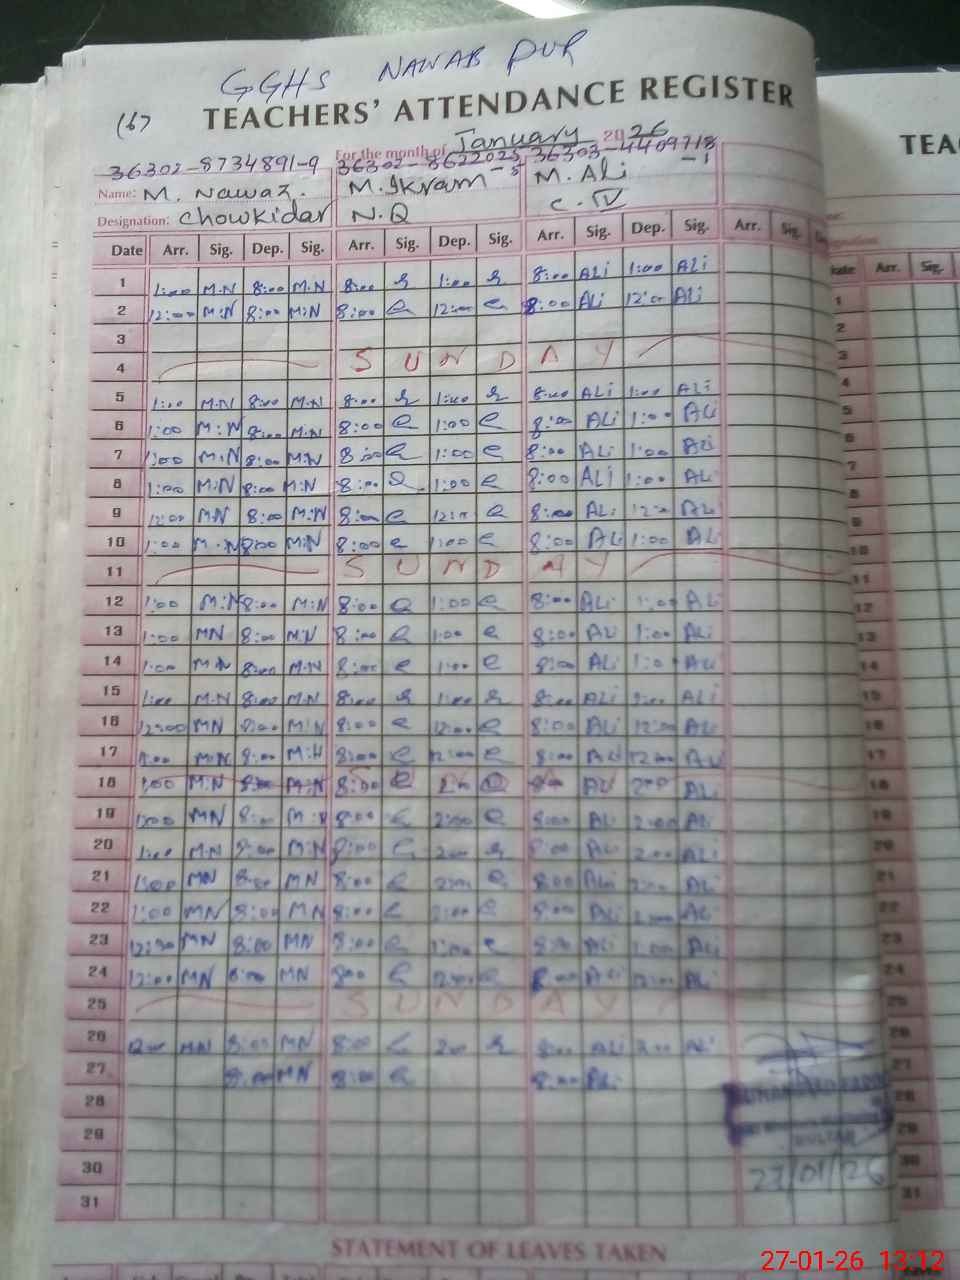 GGHS NAWAB PUR
(16)
TEACHERS' ATTENDANCE REGISTER
For the month of January 2026
36302-8734891-9 36302-8622025-5 36303-4409718-1
Name: M. Nawaz. M. Ikram M. Ali
Designation: Chowkidar N.Q C.IV
Date Arr. Sig. Dep. Sig. Arr. Sig. Dep. Sig. Arr. Sig. Dep. Sig. Arr. Sig.
1 1:00 M.N 8:00 M.N 8:00 1:00 8:00 ALi 1:00 ALi
2 12:00 M:N 8:00 M:N 8:00 e 12:00 e 8:00 ALi 12:00 ALi
3
4 SUNDAY
5 1:00 M.N 8:00 M.N 8:00 1:00 8:00 ALi 1:00 ALi
6 1:00 M:N 8:00 M.N 8:00 e 1:00 e 8:00 ALi 1:00 ALi
7 1:00 M:N 8:00 M:N 8:00 e 1:00 e 8:00 ALi 1:00 ALi
8 1:00 M:N 8:00 M:N 8:00 e 1:00 e 8:00 ALi 1:00 ALi
9 12:00 MN 8:00 M:N 8:00 e 12:00 e 8:00 ALi 12:00 ALi
10 1:00 M.N 8:00 M:N 8:00 e 1:00 e 8:00 ALi 1:00 ALi
11 SUNDAY
12 1:00 M:N 8:00 M:N 8:00 e 1:00 e 8:00 ALi 1:00 ALi
13 1:00 MN 8:00 M:N 8:00 e 1:00 e 8:00 ALi 1:00 ALi
14 1:00 M.N 8:00 M.N 8:00 e 1:00 e 8:00 ALi 1:00 ALi
15 1:00 M.N 8:00 M.N 8:00 1:00 8:00 ALi ALi
16 12:00 MN 8:00 M:N 8:00 e 12:00 e 8:00 ALi 12:00 ALi
17 M:N 8:00 8:00 e 12:00 e 8:00 ALi 12:00 ALi
18 M:N M:N 8:00 e ALi
19 MN 8:00 8:00 e 2:00 e 8:00 ALi 2:00 ALi
20 1:00 M.N 8:00 M:N 8:00 e 2:00 8:00 ALi 2:00 ALi
21 MN 8:00 MN 8:00 e e 8:00 ALi ALi
22 1:00 MN 8:00 MN 8:00 e 2:00 e 8:00 ALi ALi
23 12:30 MN 8:00 MN 8:00 e 1:00 e 8:00 ALi 1:00 ALi
24 12:00 MN 8:00 MN 8:00 e 12:00 e 8:00 ALi 12:00 ALi
25 SUNDAY
26 MN 8:00 MN 8:00 e 2:00 8:00 ALi 2:00 ALi
27 8:00 MN 8:00 e 8:00 ALi
28
29
30
31
27/01/26
STATEMENT OF LEAVES TAKEN
27-01-26 13:12
TEA
Arr. Sig.
1
2
3
4
5
6
7
8
9
10
11
12
13
14
15
16
17
18
19
20
21
22
23
24
25
26
27
28
29
30
31